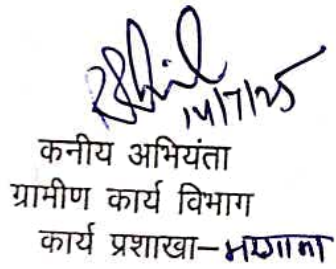 14/7/25
कनीय अभियंता
ग्रामीण कार्य विभाग
कार्य प्रशाखा-